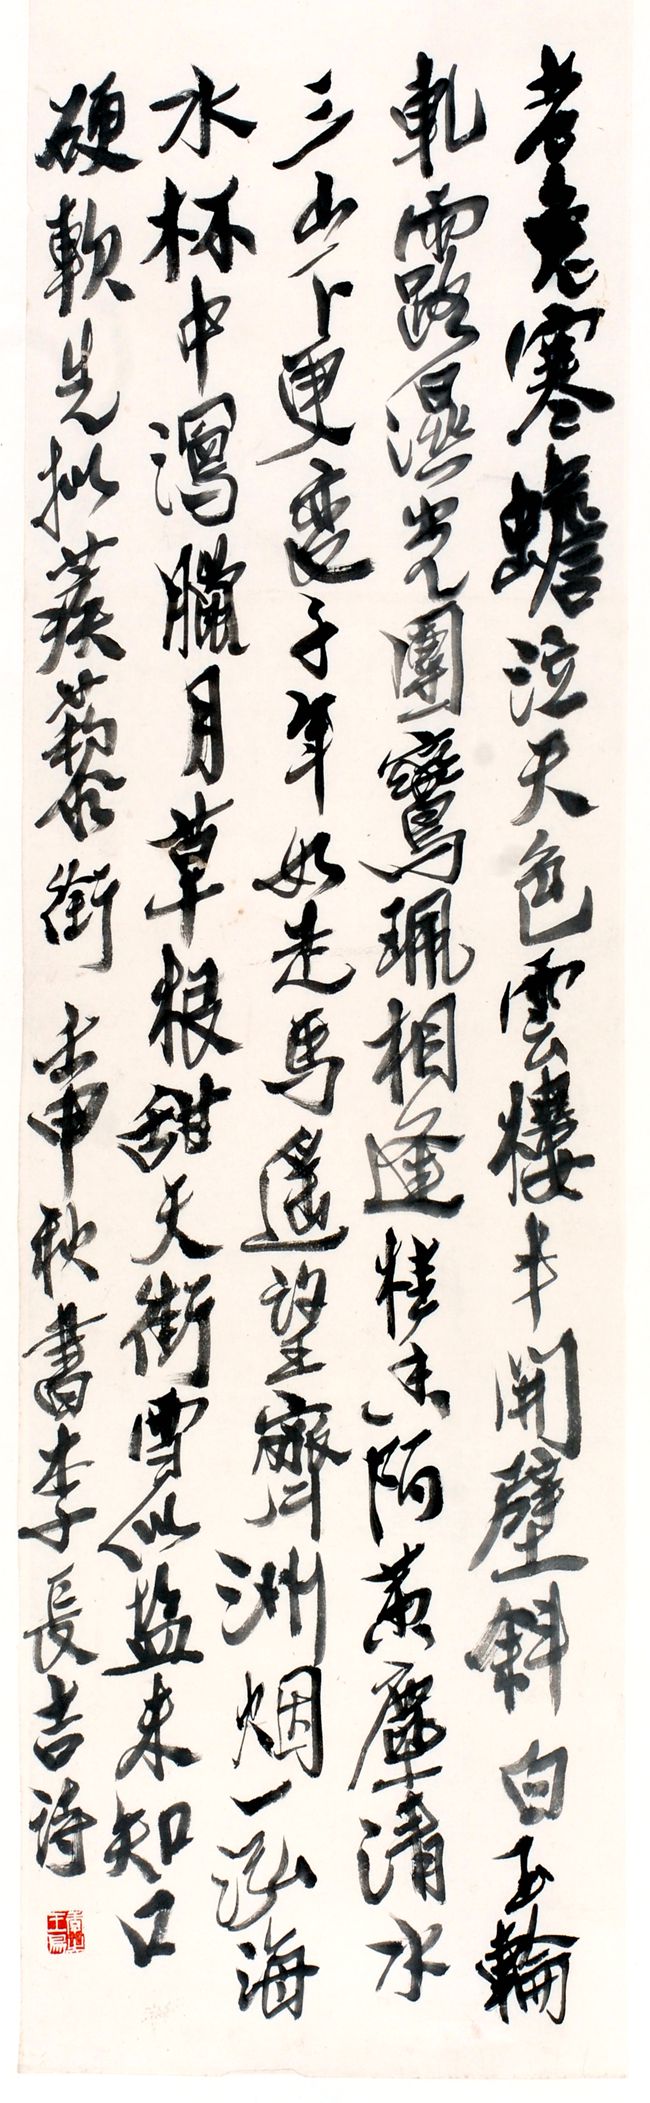 老兔寒蟾泣天色雲樓半開壁斜白玉輪
軋露濕光團鸞珮相逢桂香陌黃塵清水
三山下更變千年如走馬遙望齊洲烟一泓海
水杯中瀉臘月草根甜天街雪似盐未知口
硬軟先拟蒺藜銜 壬申秋書李長吉詩